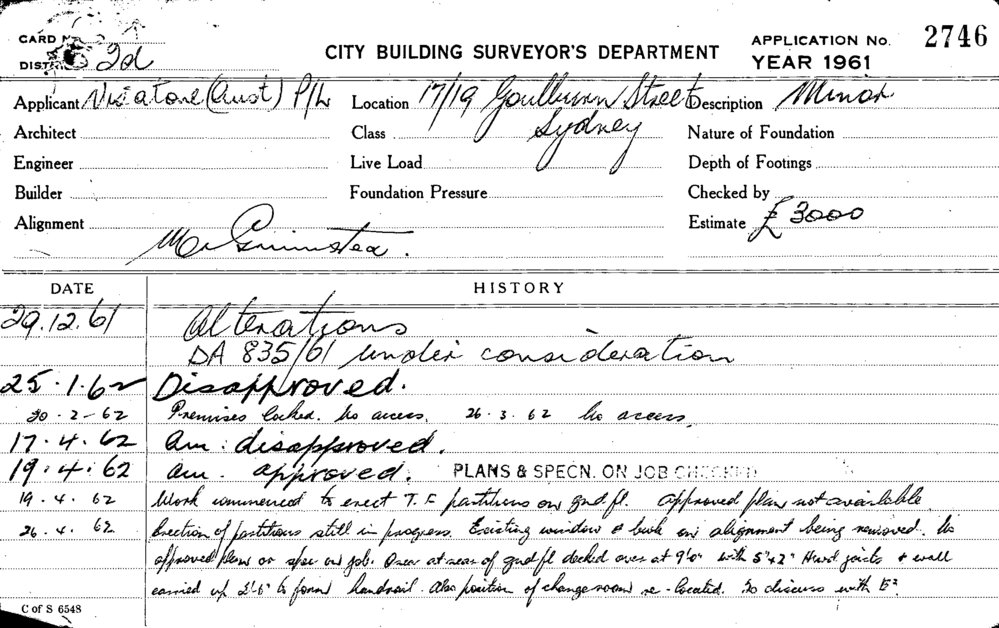 CARD No.
DISTRICT 2d
CITY BUILDING SURVEYOR'S DEPARTMENT
APPLICATION No. 2746
YEAR 1961
Applicant Visatone (Aust) P/L Location 17/19 Goulburn Street Description Minor
Sydney
Architect Class Nature of Foundation
Engineer Live Load Depth of Footings
Builder Foundation Pressure Checked by
Alignment Estimate £3000
Mr
DATE HISTORY
29.12.61 Alterations
DA 835/61 under consideration
25.1.62 Disapproved.
20-2-62 Premises locked. No access. 26.3.62 No access.
17.4.62 am: disapproved.
19.4.62 am. approved. PLANS & SPECN. ON JOB CHECKED
19.4.62 Work commenced to erect T.F partitions on gnd fl. Approved plan not available
26.4.62 Erection of partitions still in progress. Existing window & bulk on alignment being removed. No
approved plans or spec on job. Area at rear of gnd fl decked over at 9'0" with 5"x2" Hwd joists & wall
carried up 2'6" to form handrail. Also position of changeroom re-located. To discuss with
C of S 6548